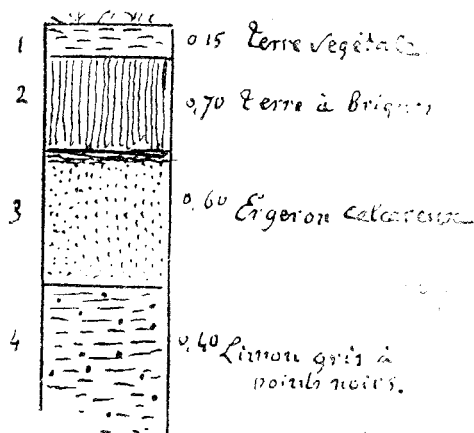 1 0,15 terre végétale
2 0,70 terre à briques
3 0,60 Ergeron calcareux
4 0,40 Limon gris à
points noirs.